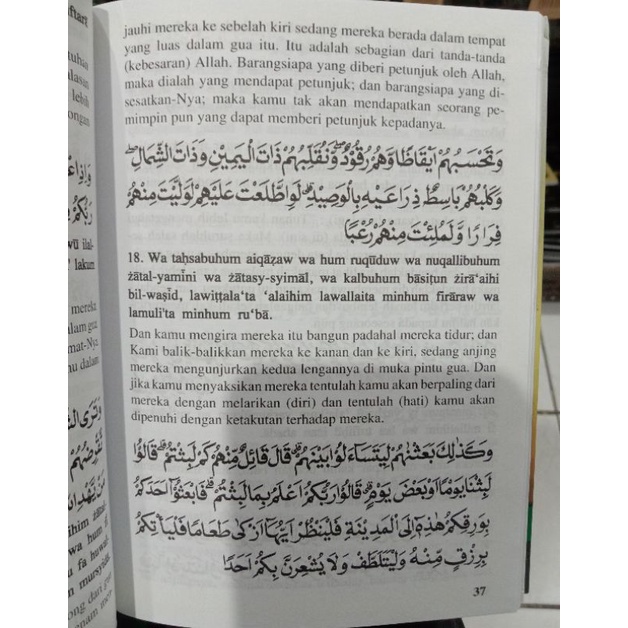 jauhi mereka ke sebelah kiri sedang mereka berada dalam tempat
yang luas dalam gua itu. Itu adalah sebagian dari tanda-tanda
(kebesaran) Allah. Barangsiapa yang diberi petunjuk oleh Allah,
maka dialah yang mendapat petunjuk; dan barangsiapa yang di-
sesatkan-Nya; maka kamu tak akan mendapatkan seorang pe-
mimpin pun yang dapat memberi petunjuk kepadanya.
وَتَحْسَبُهُمْ اَيْقَاظًا وَّهُمْ رُقُوْدٌ ۖ وَّنُقَلِّبُهُمْ ذَاتَ الْيَمِيْنِ وَذَاتَ الشِّمَالِ ۖ
وَكَلْبُهُمْ بَاسِطٌ ذِرَاعَيْهِ بِالْوَصِيْدِ ۗ لَوِاطَّلَعْتَ عَلَيْهِمْ لَوَلَّيْتَ مِنْهُمْ
فِرَارًا وَّلَمُلِئْتَ مِنْهُمْ رُعْبًا
18. Wa taḥsabuhum aiqāẓaw wa hum ruqūduw wa nuqallibuhum
żātal-yamīni wa żātasy-syimāl, wa kalbuhum bāsiṭun żirā‘aihi
bil-waṣīd, lawiṭṭala‘ta ‘alaihim lawallaita minhum firāraw wa
lamuli'ta minhum ru‘bā.
Dan kamu mengira mereka itu bangun padahal mereka tidur; dan
Kami balik-balikkan mereka ke kanan dan ke kiri, sedang anjing
mereka mengunjurkan kedua lengannya di muka pintu gua. Dan
jika kamu menyaksikan mereka tentulah kamu akan berpaling dari
mereka dengan melarikan (diri) dan tentulah (hati) kamu akan
dipenuhi dengan ketakutan terhadap mereka.
وَكَذٰلِكَ بَعَثْنٰهُمْ لِيَتَسَاۤءَلُوْا بَيْنَهُمْ ۗ قَالَ قَاۤئِلٌ مِّنْهُمْ كَمْ لَبِثْتُمْ ۗ قَالُوْا
لَبِثْنَا يَوْمًا اَوْ بَعْضَ يَوْمٍ ۗ قَالُوْا رَبُّكُمْ اَعْلَمُ بِمَا لَبِثْتُمْ ۗ فَابْعَثُوْٓا اَحَدَكُمْ
بِوَرِقِكُمْ هٰذِهٖٓ اِلَى الْمَدِيْنَةِ فَلْيَنْظُرْ اَيُّهَآ اَزْكٰى طَعَامًا فَلْيَأْتِكُمْ
بِرِزْقٍ مِّنْهُ وَلْيَتَلَطَّفْ وَلَا يُشْعِرَنَّ بِكُمْ اَحَدًا
37